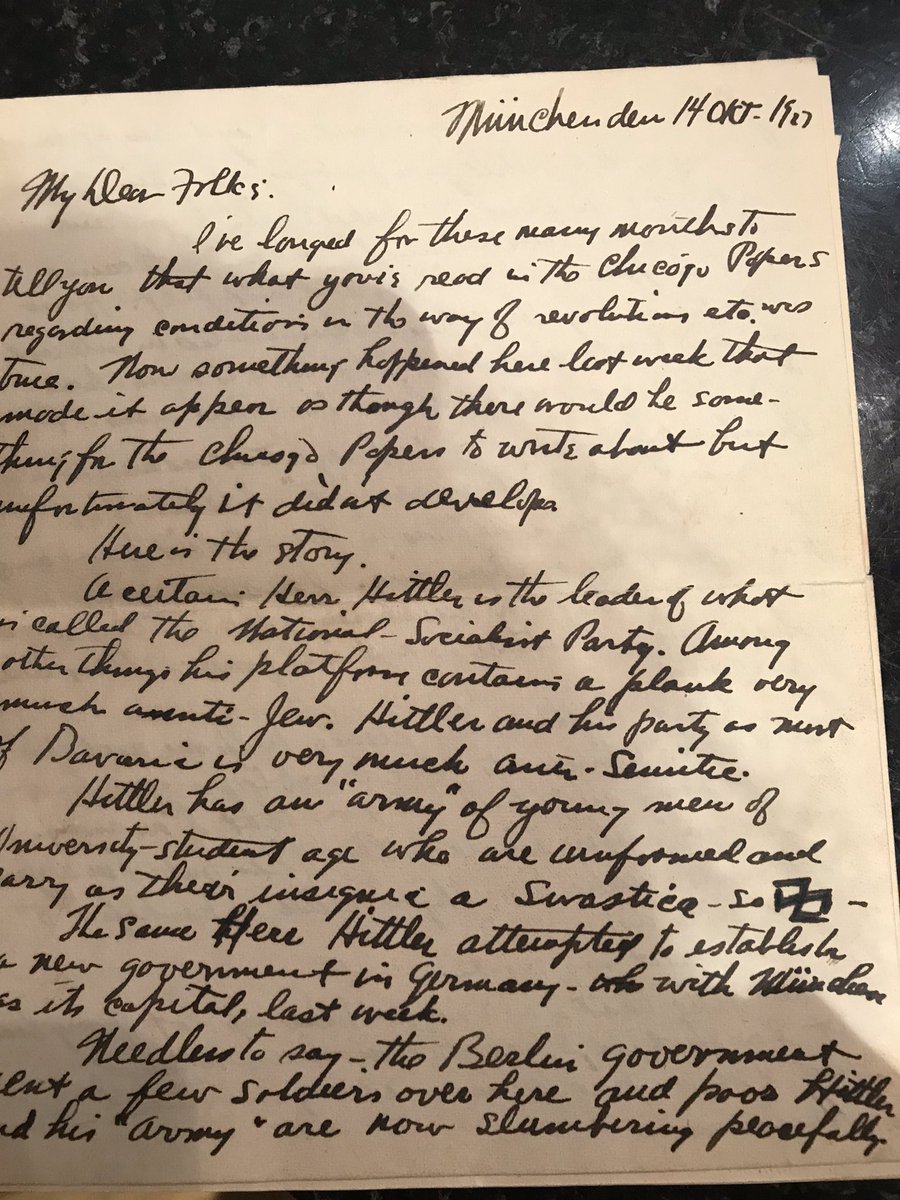 München den 14 Okt. 19
My Dear Folks.
I've longed for these many months to
tell you that what you's read in the Chicago Papers
regarding conditions in the way of revolutions etc. was
true. Now something happened here last week that
made it appear as though there would be some-
thing for the Chicago Papers to write about but
unfortunately it didn't develope
Here is the story.
A certain Herr Hittler is the leader of what
is called the National-Socialist Party. Among
other things his platform contains a plank very
much anti-Jew. Hittler and his party as most
of Bavaria is very much anti-Semitic.
Hittler has an "army" of young men of
University-student age who are uniformed and
carry as their insignia a Swastica - so 卐 -
The same Herr Hittler attempted to establish
a new government in Germany - with München
as its capital, last week.
Needless to say - the Berlin government
sent a few soldiers over here and poor Hittler
and his "army" are now slumbering peacefully